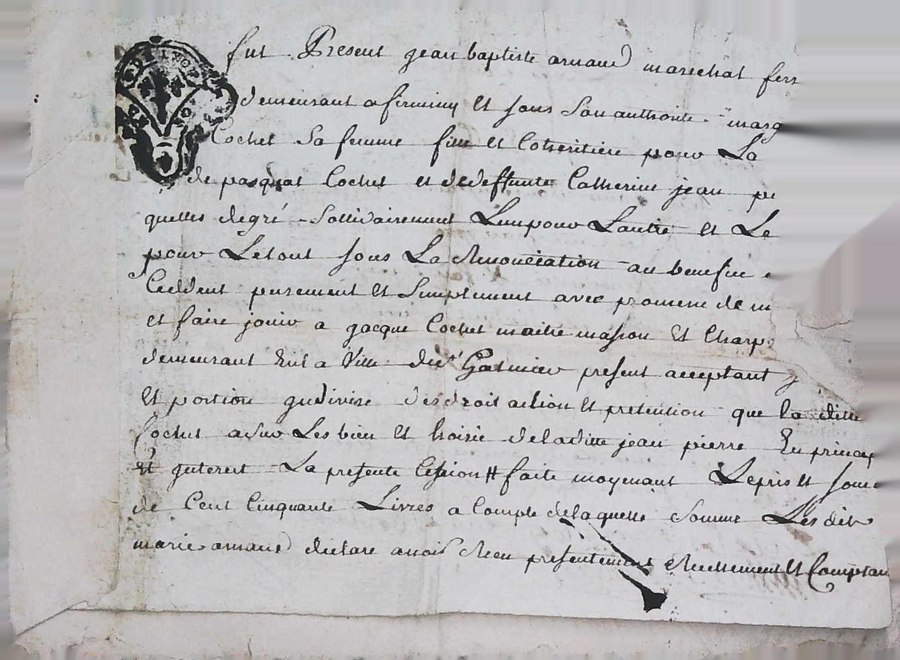 fut Present gean baptiste arnaud marechal ferr
demeurant a firminy Et sous Son authorité marg
Cochet Sa femme fille et Coheritiere pour La
de pasqual Cochet et dedeffunte Catherine jean pe
quelles degré Sollidairement Lun pour Lautre et Le
pour Letout sous La Renonciation au benefice
Ceddent purement Et Simplement avec promesse de m
et faire jouir a gacque Cochet maitre masson Et Charp
demeurant En la Ville present acceptant
Et portion gndivise des droit action Et pretention que la ditte
Cochet a sur Les bien Et hoirie de laditte jean pierre En princip
Et gnterest La presente Cession faitte moyenant Le pris Et somme
de Cent Cinquante Livres a Compte de laquelle somme Lesdit
marie arnaud declare avoir Receu presentement Reellement Et Comptan